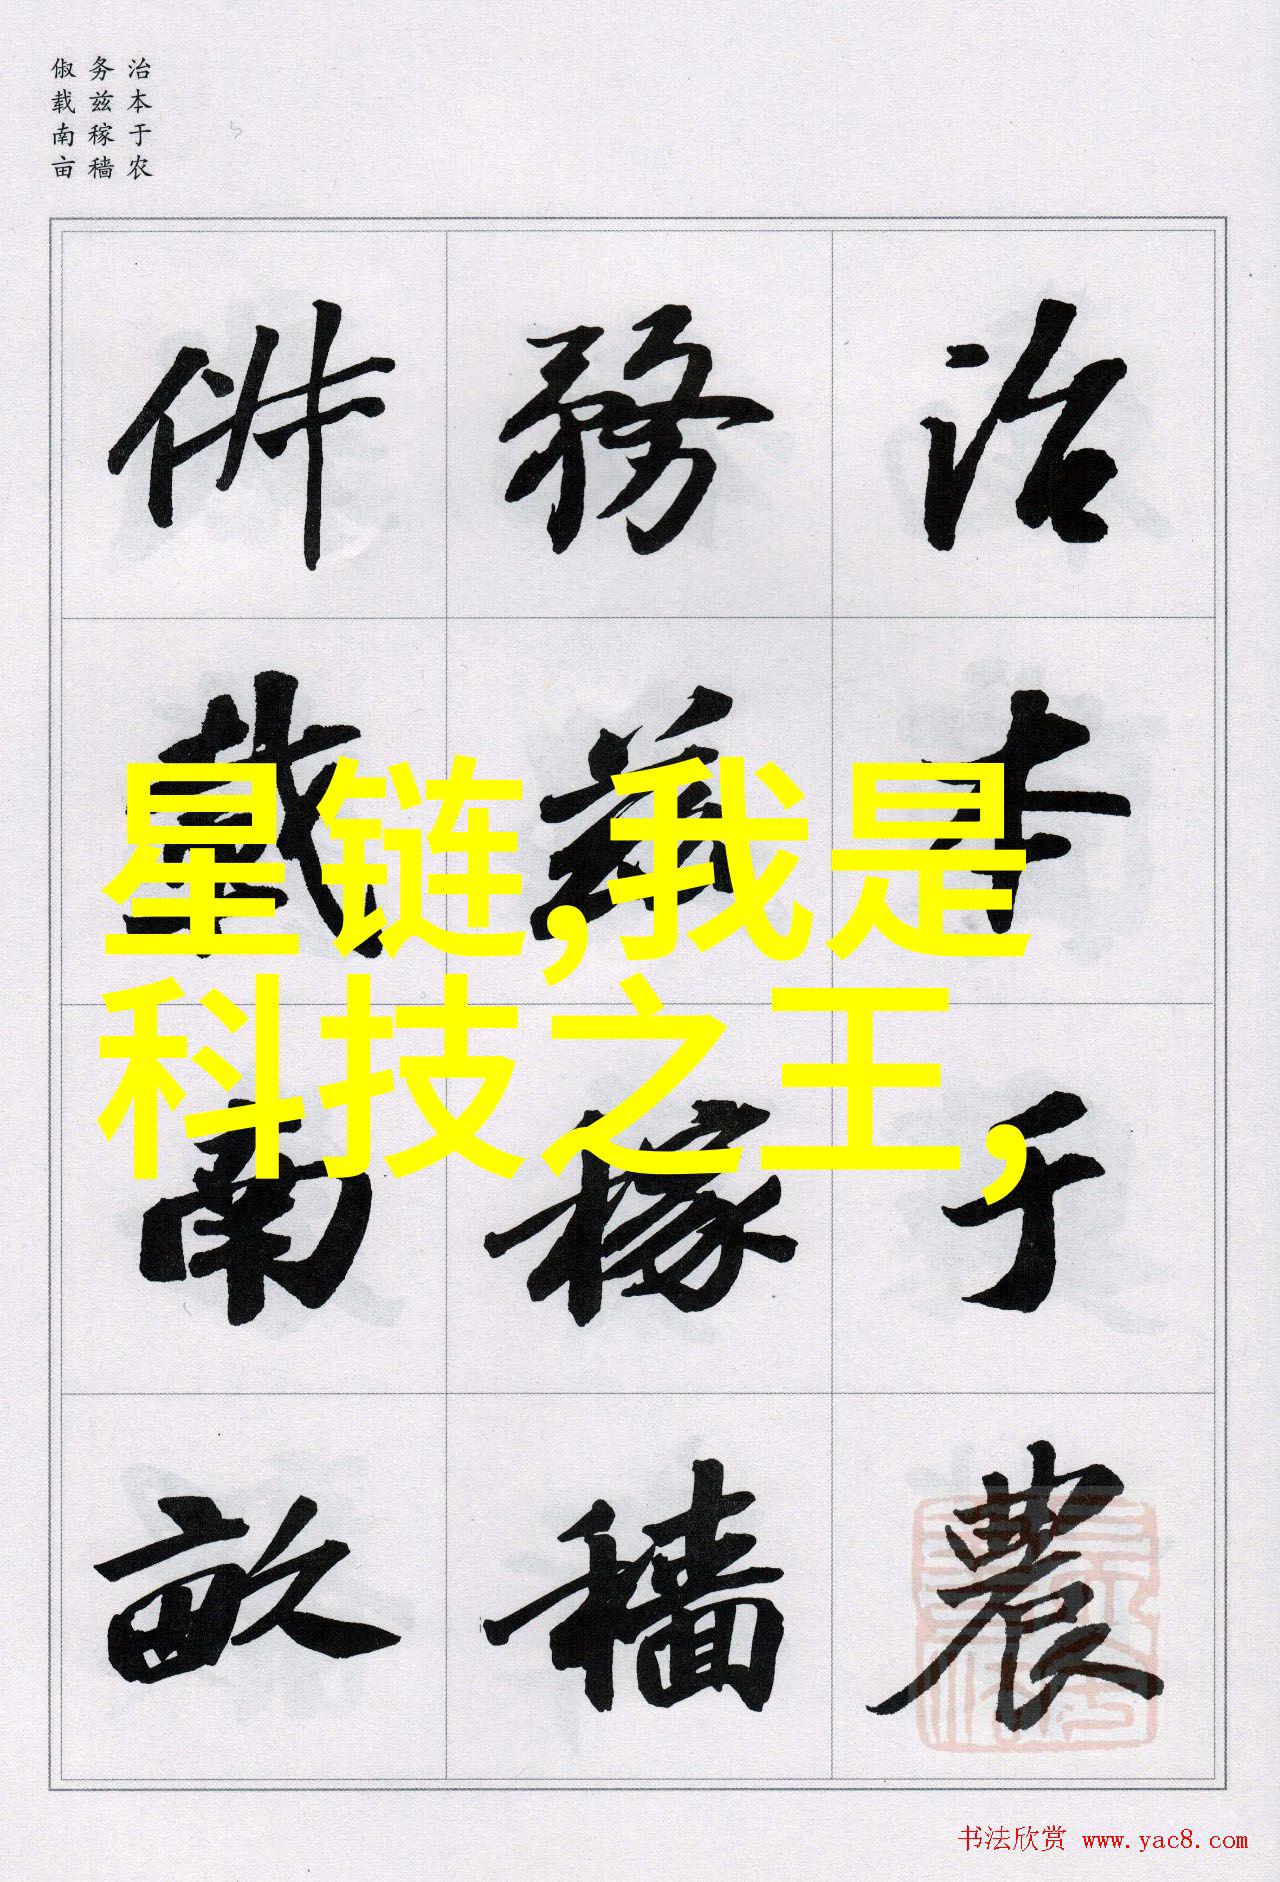 治本于农
务兹稼穑
俶载南亩
治本于農
務茲稼穡
俶載南畝
星链,我是
科技之王,
书法欣赏 www.yac8.com